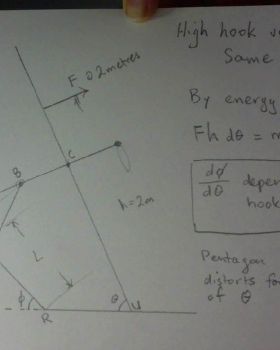 High hook
Same
F @ 2 metres
By energy
Fh dθ = m
B
C
h = 2m
dϕ
dθ
depen
hook
L
Pentagon
distorts fo
of θ
ϕ
R
θ
U